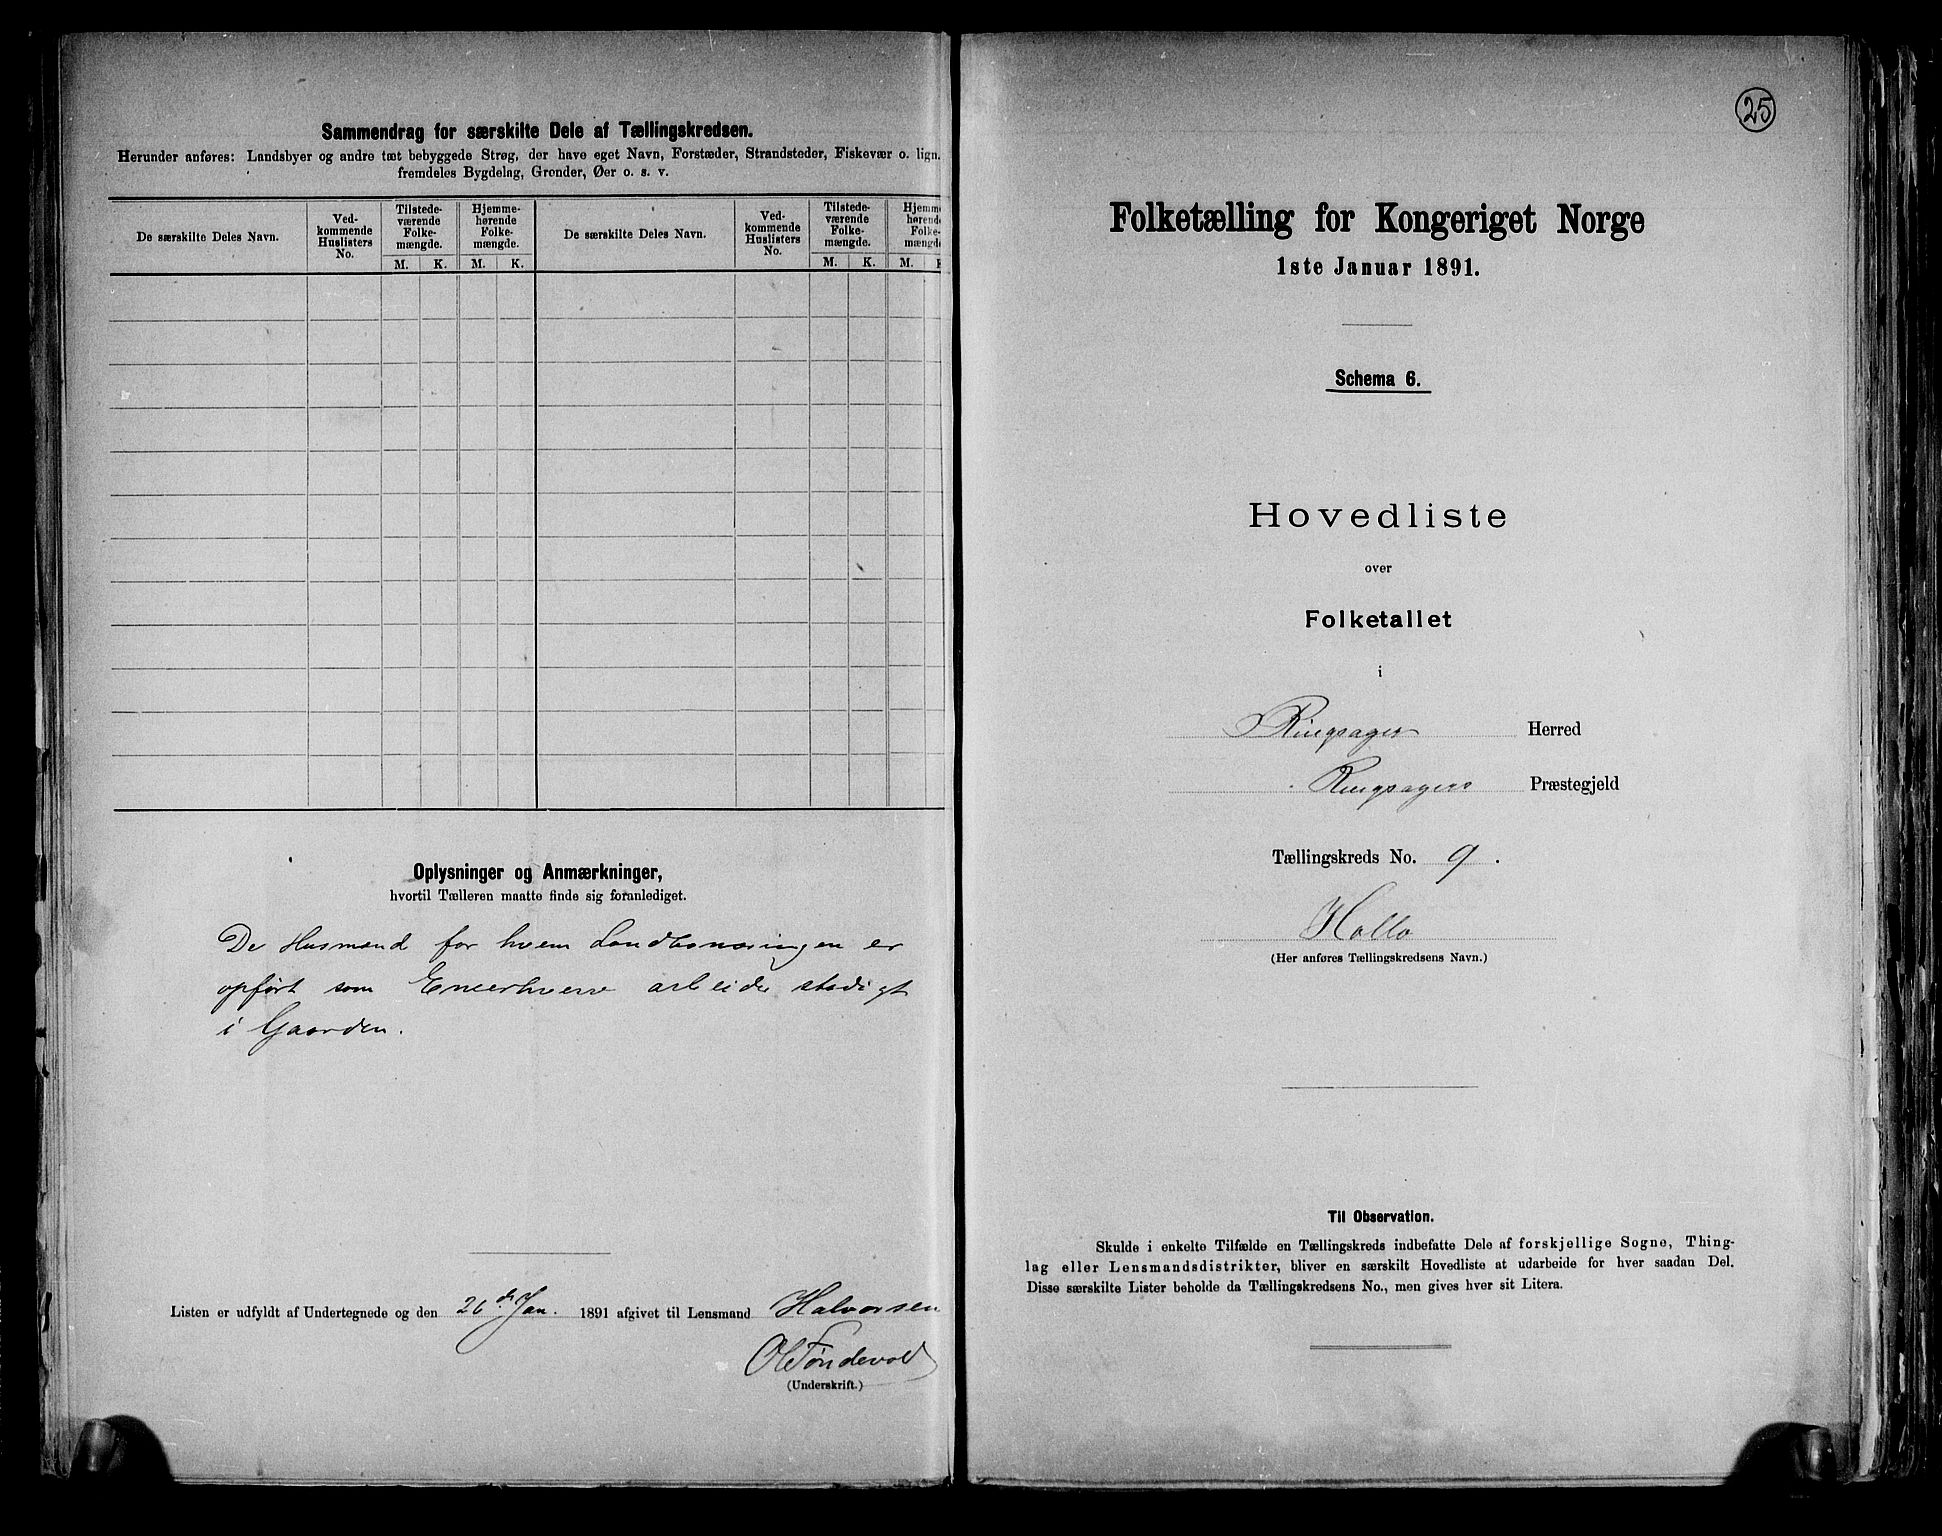 Sammendrag for særskilte Dele af Tællingskredsen.
Herunder anføres: Landsbyer og andre tæt bebyggede Strøg, der have eget Navn, Forstæder, Strandsteder, Fiskevær o. lign.
fremdeles Bygdelag, Grender, Øer o. s. v.
De særskilte Deles Navn.
Ved-
kommende
Huslisters
No.
Tilstede-
værende
Folke-
mængde.
Hjemme-
hørende
Folke-
mængde.
M. K. M. K.
De særskilte Deles Navn.
Ved-
kommende
Huslisters
No.
Tilstede-
værende
Folke-
mængde.
Hjemme
hørende
Folke-
mængde
M. K. M.
Oplysninger og Anmærkninger,
hvortil Tælleren maatte finde sig foranlediget.
De Husmænd for hvem Landbonæringen er
opført som Eneerhverv arbeider stadigt
i Gaarden.
Listen er udfyldt af Undertegnede og den 26de Jan. 1891 afgivet til Lensmand Halvorsen
(Underskrift.)
25
Folketælling for Kongeriget Norge
1ste Januar 1891.
Schema 6.
Hovedliste
over
Folketallet
i
Ringsager Herred
Ringsagers Præstegjeld
Tællingskreds No. 9.
(Her anføres Tællingskredsens Navn.)
Til Observation.
Skulde i enkelte Tilfælde en Tællingskreds indbefatte Dele af forskjellige Sogne, Thing-
lag eller Lensmandsdistrikter, bliver en særskilt Hovedliste at udarbeide for hver saadan Del.
Disse særskilte Lister beholde da Tællingskredsens No., men gives hver sit Litera.